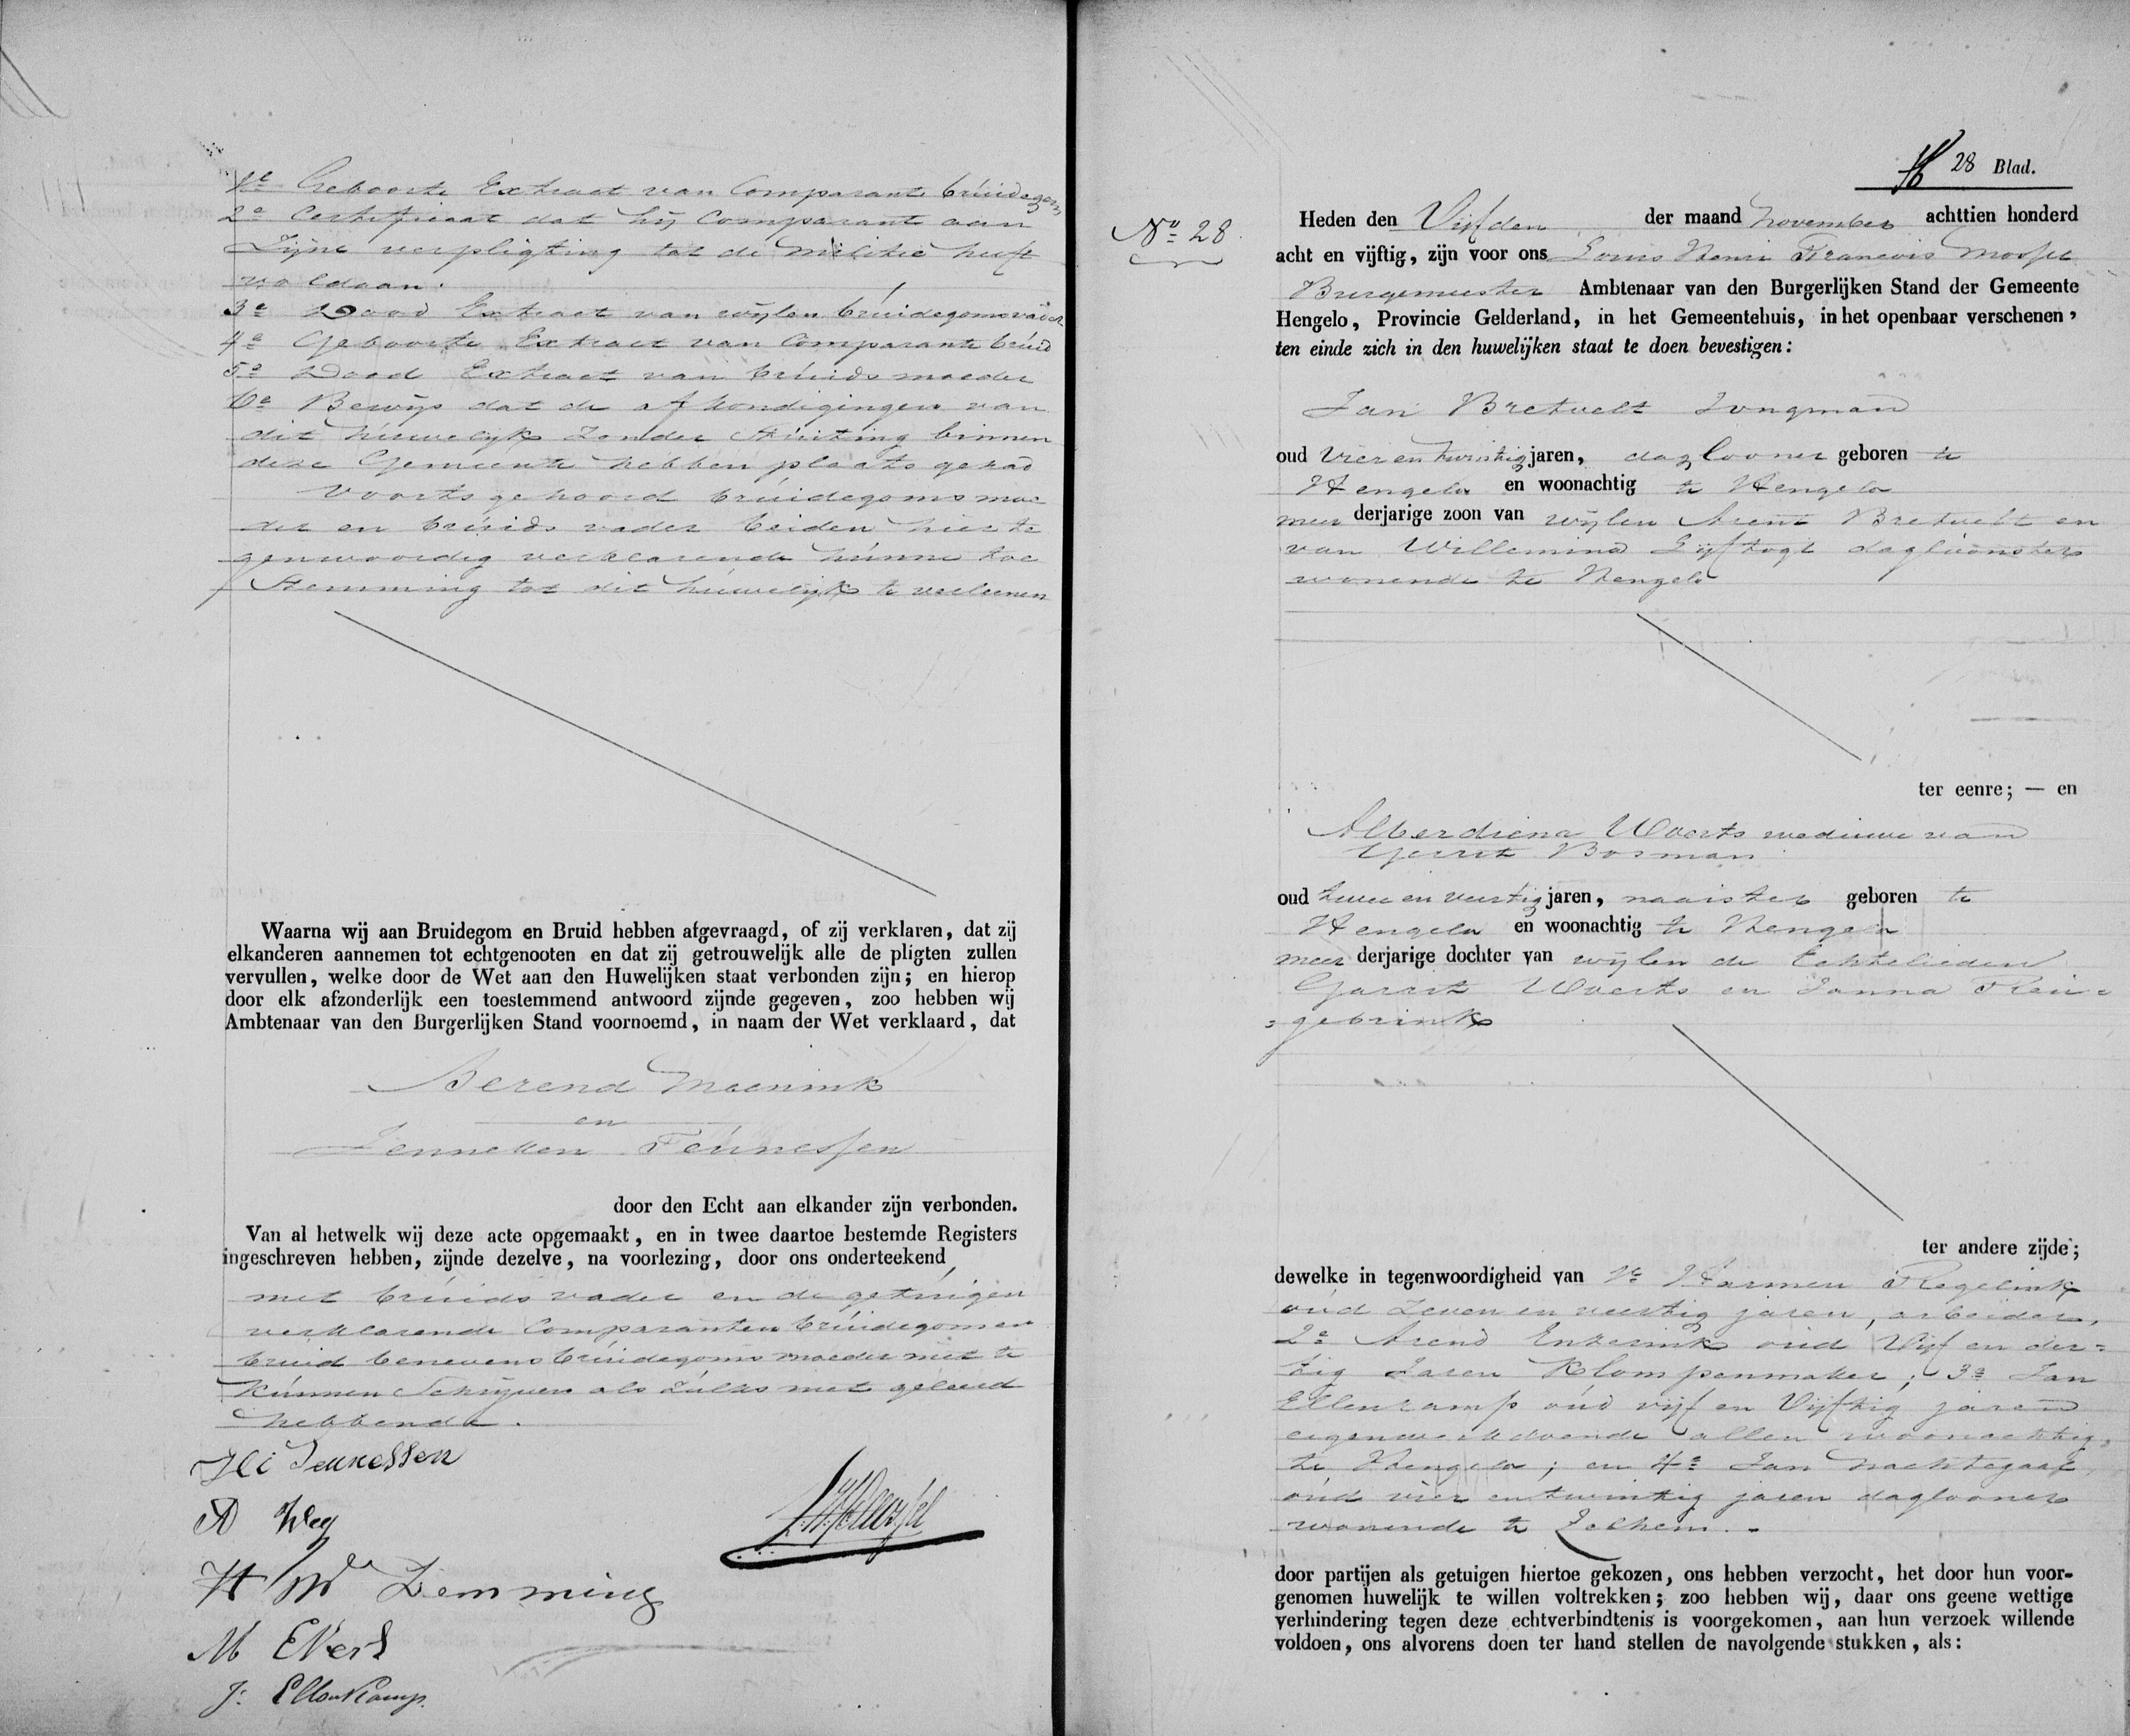 1e Geboorte Extract van Comparant bruidegom,
2e Certificaat dat hij Comparant aan
Zijne verpligting tot de Militie heeft
voldaan.
3e Dood Extract van wijlen bruidegomsvader
4e Geboorte Extract van Comparante bruid
5e Dood Extract van bruids moeder
6e Bewijs dat de afkondigingen van
dit huwelijk zonder stuiting binnen
deze Gemeente hebben plaats gehad
Voorts gehoord bruidegoms moe-
der en bruids vader beiden hier te
genwoordig verklarende hunne toe
stemming tot dit huwelijk te verleenen
Waarna wij aan Bruidegom en Bruid hebben afgevraagd, of zij verklaren, dat zij
elkanderen aannemen tot echtgenooten en dat zij getrouwelijk alle de pligten zullen
vervullen, welke door de Wet aan den Huwelijken staat verbonden zijn; en hierop
door elk afzonderlijk een toestemmend antwoord zijnde gegeven, zoo hebben wij
Ambtenaar van den Burgerlijken Stand voornoemd, in naam der Wet verklaard, dat
Berend Meenink
en
Jenneken Teunessen
door den Echt aan elkander zijn verbonden.
Van al hetwelk wij deze acte opgemaakt, en in twee daartoe bestemde Registers
ingeschreven hebben, zijnde dezelve, na voorlezing, door ons onderteekend
met bruids vader en de getuigen
verklarende Comparanten bruidegom en
bruid benevens bruidegoms moeder niet te
kunnen Schrijven als zulks niet geleerd
hebbende.
Teunessen
A Weg
H W Demming
M Evers
J. Ellenkamp.
28 Blad.
No 28.
Heden den Vijfden der maand November achttien honderd
acht en vijftig, zijn voor ons Louis Henri Francois
Burgemeester Ambtenaar van den Burgerlijken Stand der Gemeente
Hengelo, Provincie Gelderland, in het Gemeentehuis, in het openbaar verschenen,
ten einde zich in den huwelijken staat te doen bevestigen:
Jan Bretvelt Jongman
oud Vier en twintig jaren, daglooner geboren te
Hengelo en woonachtig te Hengelo
meer derjarige zoon van wijlen Arent Bretvelt en
van Willemina Lijftogt dagloonster
wonende te Hengelo
ter eenre; — en
Alberdiena Woerts weduwe van
Gerrit Bosman
oud twee en veertig jaren, naaister geboren te
Hengelo en woonachtig te Hengelo
meer derjarige dochter van wijlen de Echtelieden
Garrit Woerts en Janna
=gebrink
ter andere zijde;
dewelke in tegenwoordigheid van 1e Harmen Regelink
oud Zeven en veertig jaren, arbeider,
2e Arend Enzerink oud Vijf en der=
tig Jaren Klompenmaker; 3e Jan
Ellenkamp oud vijf en Vijftig jaren
eigenwerkdoende allen woonachtig
te Hengelo; en 4e Jan Nachtegaal
oud vier en twintig jaren daglooner
wonende te Lochem.
door partijen als getuigen hiertoe gekozen, ons hebben verzocht, het door hun voor-
genomen huwelijk te willen voltrekken; zoo hebben wij, daar ons geene wettige
verhindering tegen deze echtverbindtenis is voorgekomen, aan hun verzoek willende
voldoen, ons alvorens doen ter hand stellen de navolgende stukken, als: